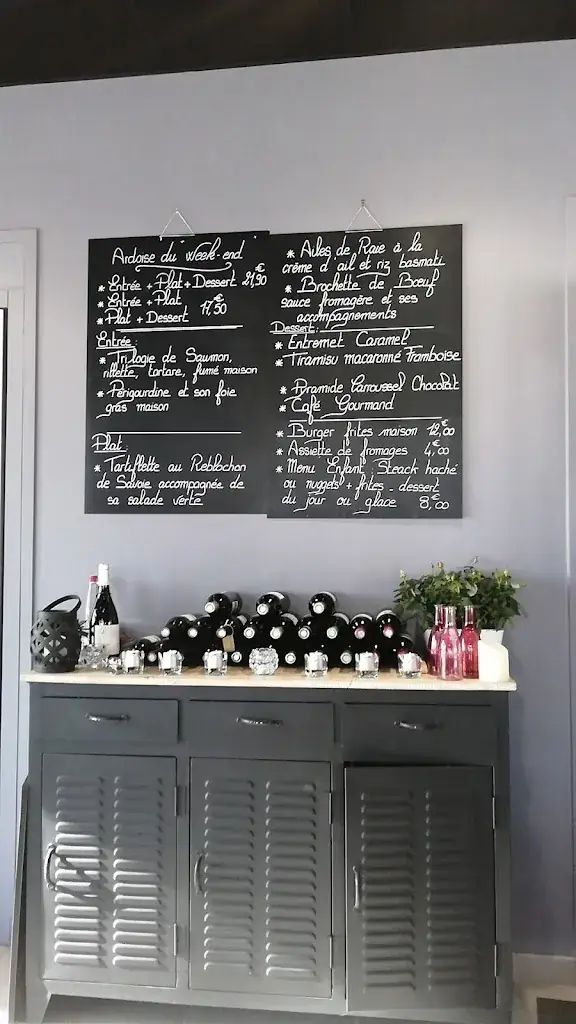 Ardoise du Week-end
* Entrée + Plat + Dessert 21,90€
* Entrée + Plat
* Plat + Dessert 17,50€
Entrée:
* Trilogie de Saumon,
rillette, tartare, fumé maison
* Périgourdine et son foie
gras maison
Plat:
* Tartiflette au Reblochon
de Savoie accompagnée de
sa salade verte
* Ailes de Raie à la
crème d'ail et riz basmati
* Brochette de Bœuf
sauce fromagère et ses
accompagnements
Dessert:
* Entremet Caramel
* Tiramisu macaronné Framboise
* Pyramide Caroussel Chocolat
* Café Gourmand
* Burger frites maison 12,00€
* Assiette de fromages 4,00€
* Menu Enfant: Steack haché
ou nuggets + frites - dessert
du jour ou glace 8,00€